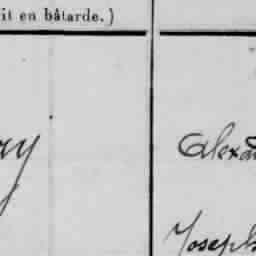 it en bâtarde.)
ay Alexa
Joseph